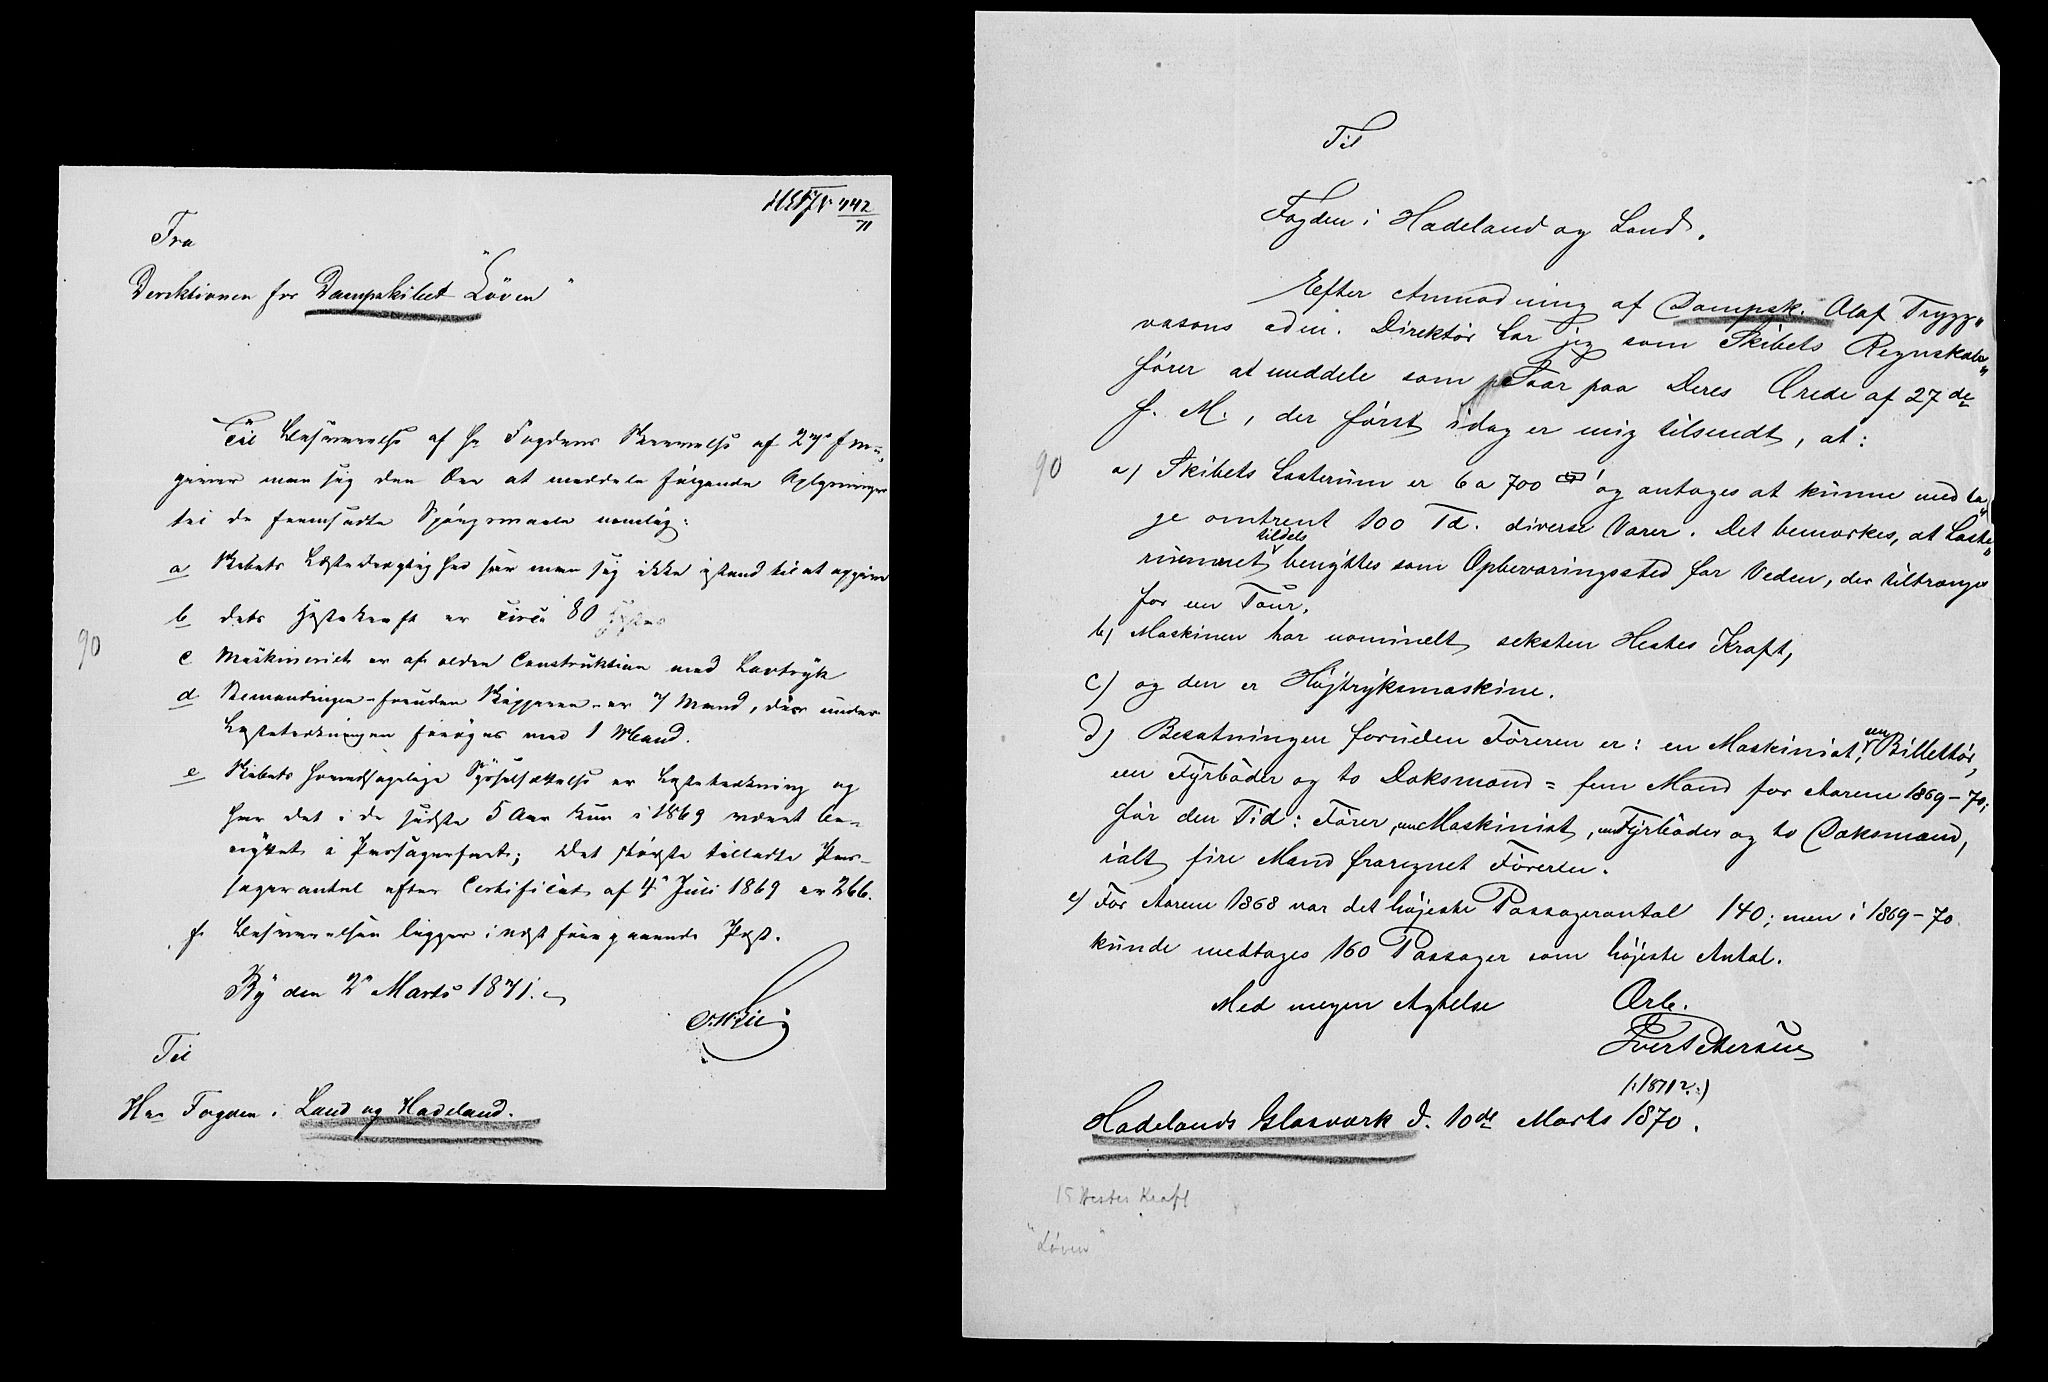 442
71
Fra
Direktionen for Dampskibet "Löven"
Til Besvarelse af Hr Fogdens Skrivelse af 27de f M:
giver man sig den Ære at meddele følgende Oplysninger
til de fremsadte Spörgsmaale nemlig:
a Skibets Læstedrægtighed ser man sig ikke istand til at opgive
b dets Hestekraft er circa 80 Hestes
c Maskineriet er af ældre Construktion med Lavtryk
d Bemandingen – foruden Skipperen – er 7 Mand, der under
Lastetrækningen foröges med 1 Mand.
e Skibets hovedsagelige Sysselsættelse er Lastetrækning og
har det i de sidste 5 Aar kun i 1869 været be-
nyttet i Passagerfart; Det störste tilladte Pas-
sagerantal efter Certificat af 4de Juli 1869 er 266.
f. Besvarelsen ligger i næst foregaaende Post.
By den 2den Marts 1871.
Til
Her Fogden i Land og Hadeland.
90
Til
Fogden i Hadeland og Land.
Efter Anmodning af Dampsk. Olaf Trygg"
vasons adm. Direktör har jeg som Skibets Regnskabs"
förer at meddele som Svar paa Deres Ærede af 27de
f. M., der först idag er mig tilsendt, at:
90
a) Skibets Lasterum er 6 a 700 og antages at kunne medta"
ge omtrent 100 Td. diverse Varer. Det bemærkes, at Laste"
rummet tildels benyttes som Opbevaringssted for Veden, der tiltrænges
for en Tour.
b) Maskinen har nominelt seksten Hestes Kraft,
c) og den er Höjtryksmaskine.
d) Besætningen foruden Föreren er: en Maskinist, en Billettör,
en Fyrböder og to Dæksmænd = fem Mand for Aarene 1869–70;
för den Tid: Förer, en Maskinist, en Fyrböder og to Dæksmænd,
ialt fire Mand fraregnet Föreren.
e) For Aarene 1868 var det höjeste Passagerantal 140; men i 1869–70
kunde medtages 160 Passager som höjeste Antal.
Med megen Agtelse Ærb.
Iver Petersen
(: 1871?:)
Hadelands Glasværk d. 10de Marts 1870.
15 Hestes Kraft
"Löven"